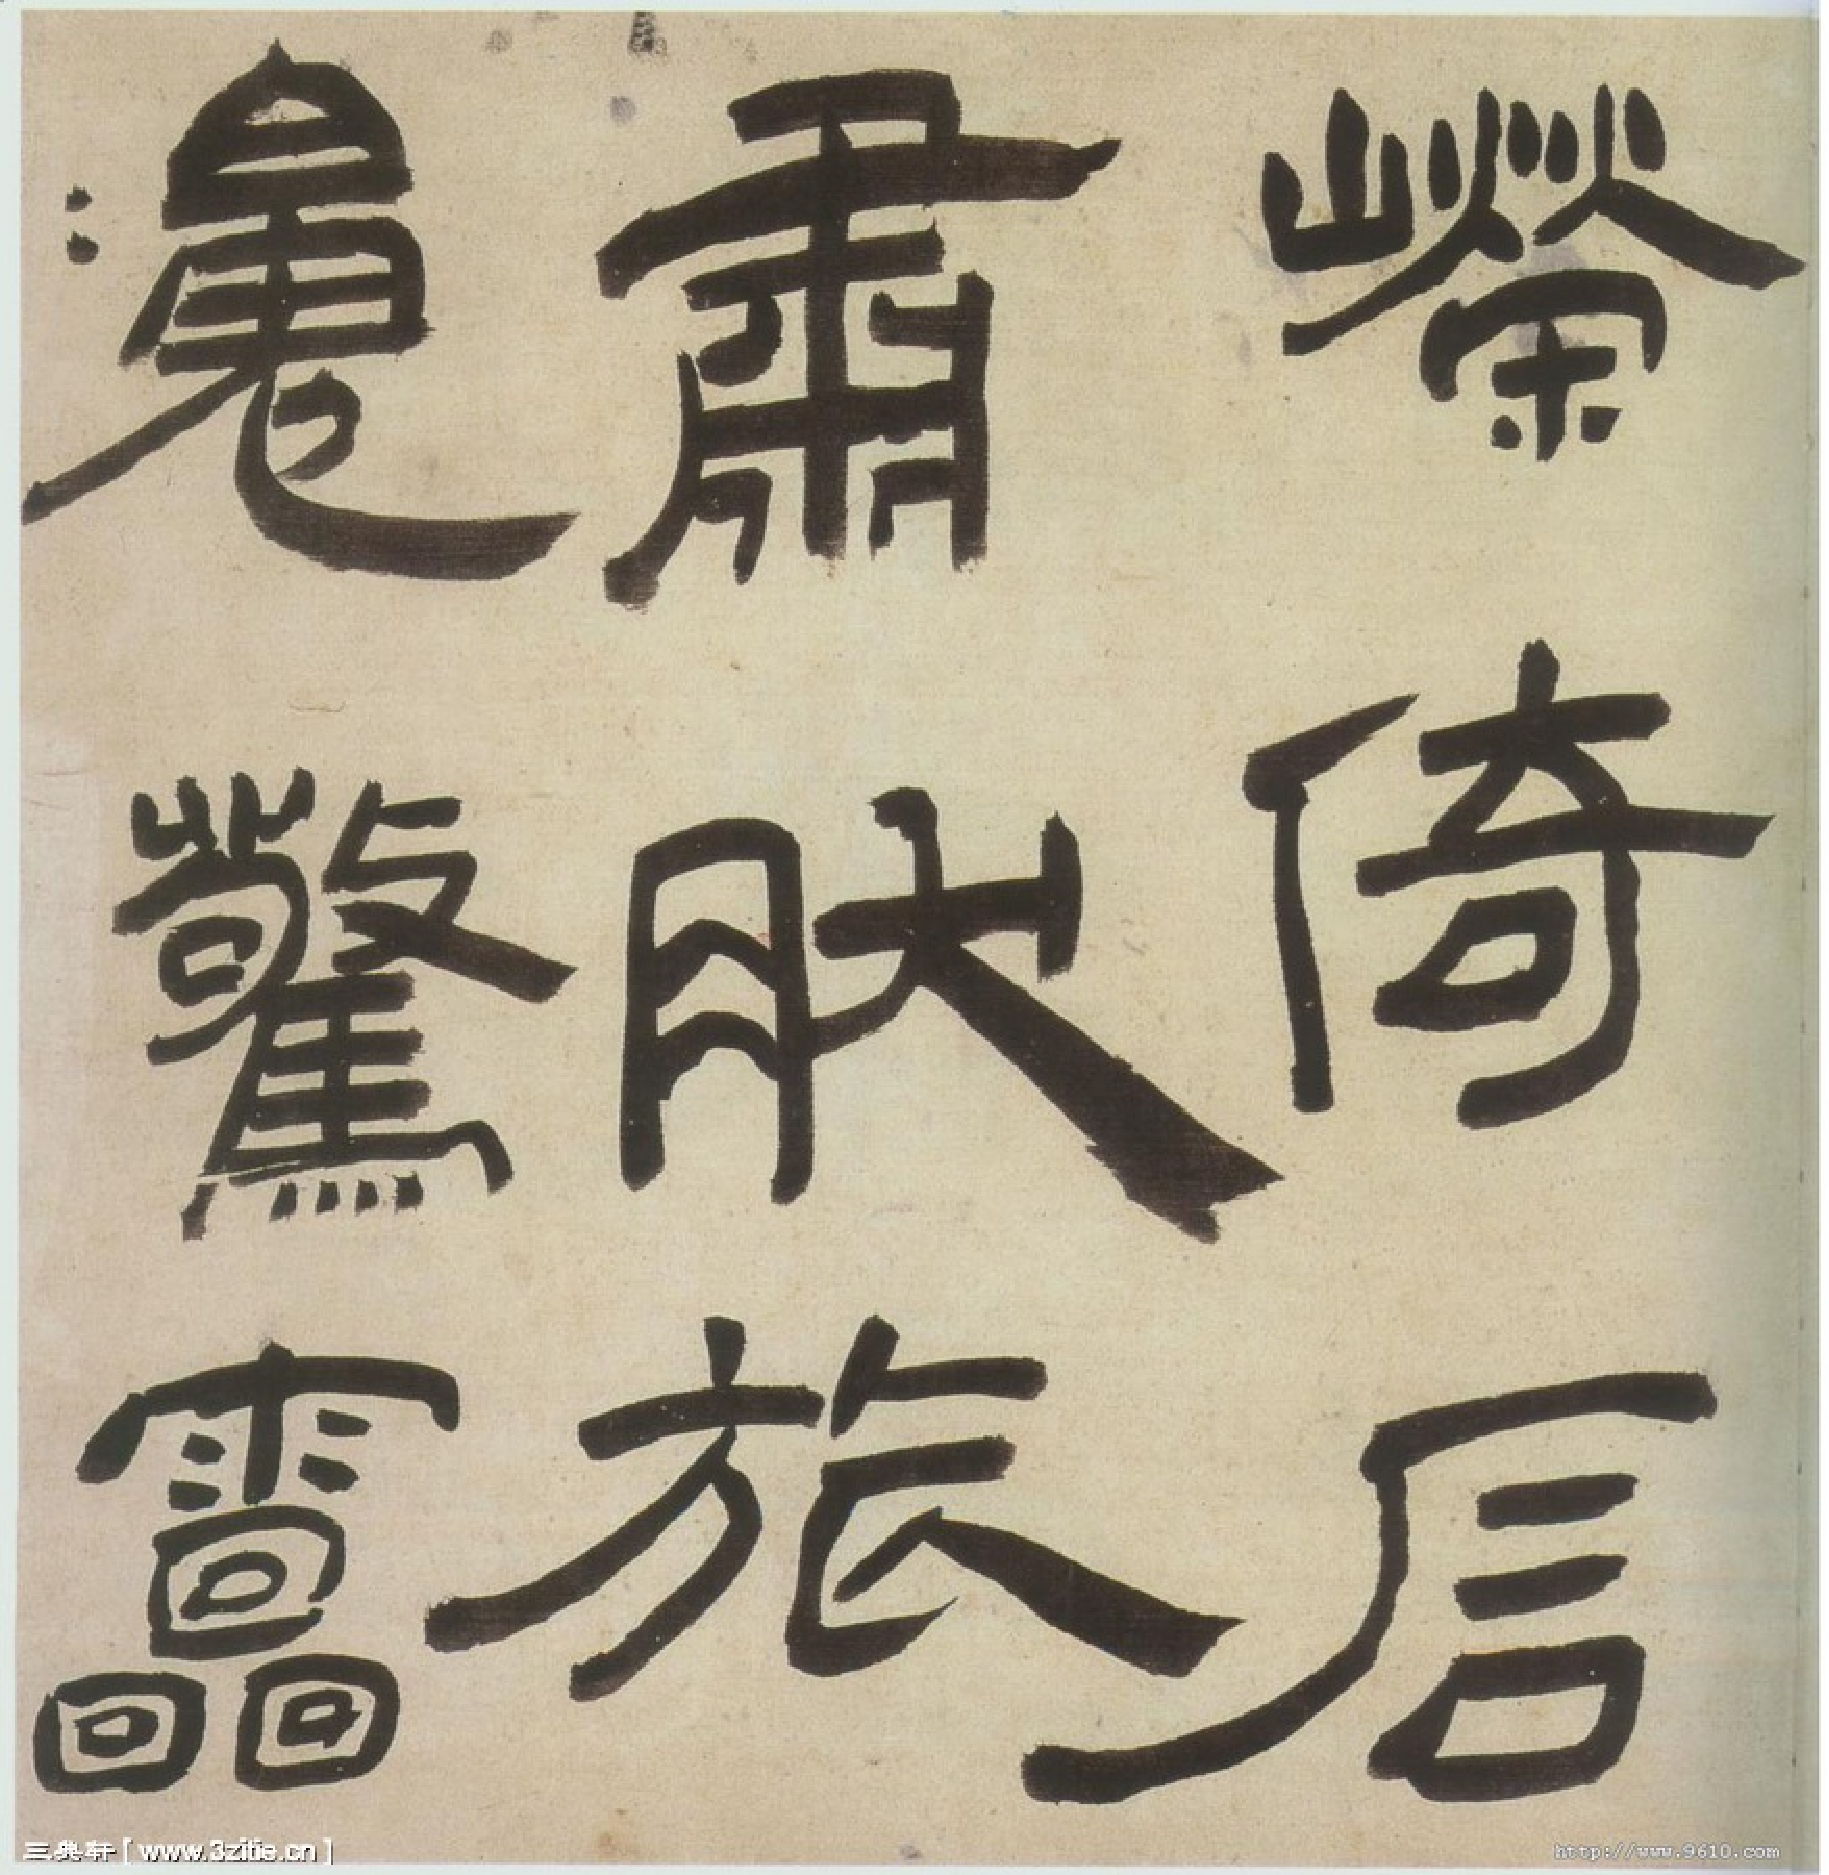 嶸倚后
肅肰旅
魂驚靁
三典轩[www.3zitie.cn]
http://www.9610.com